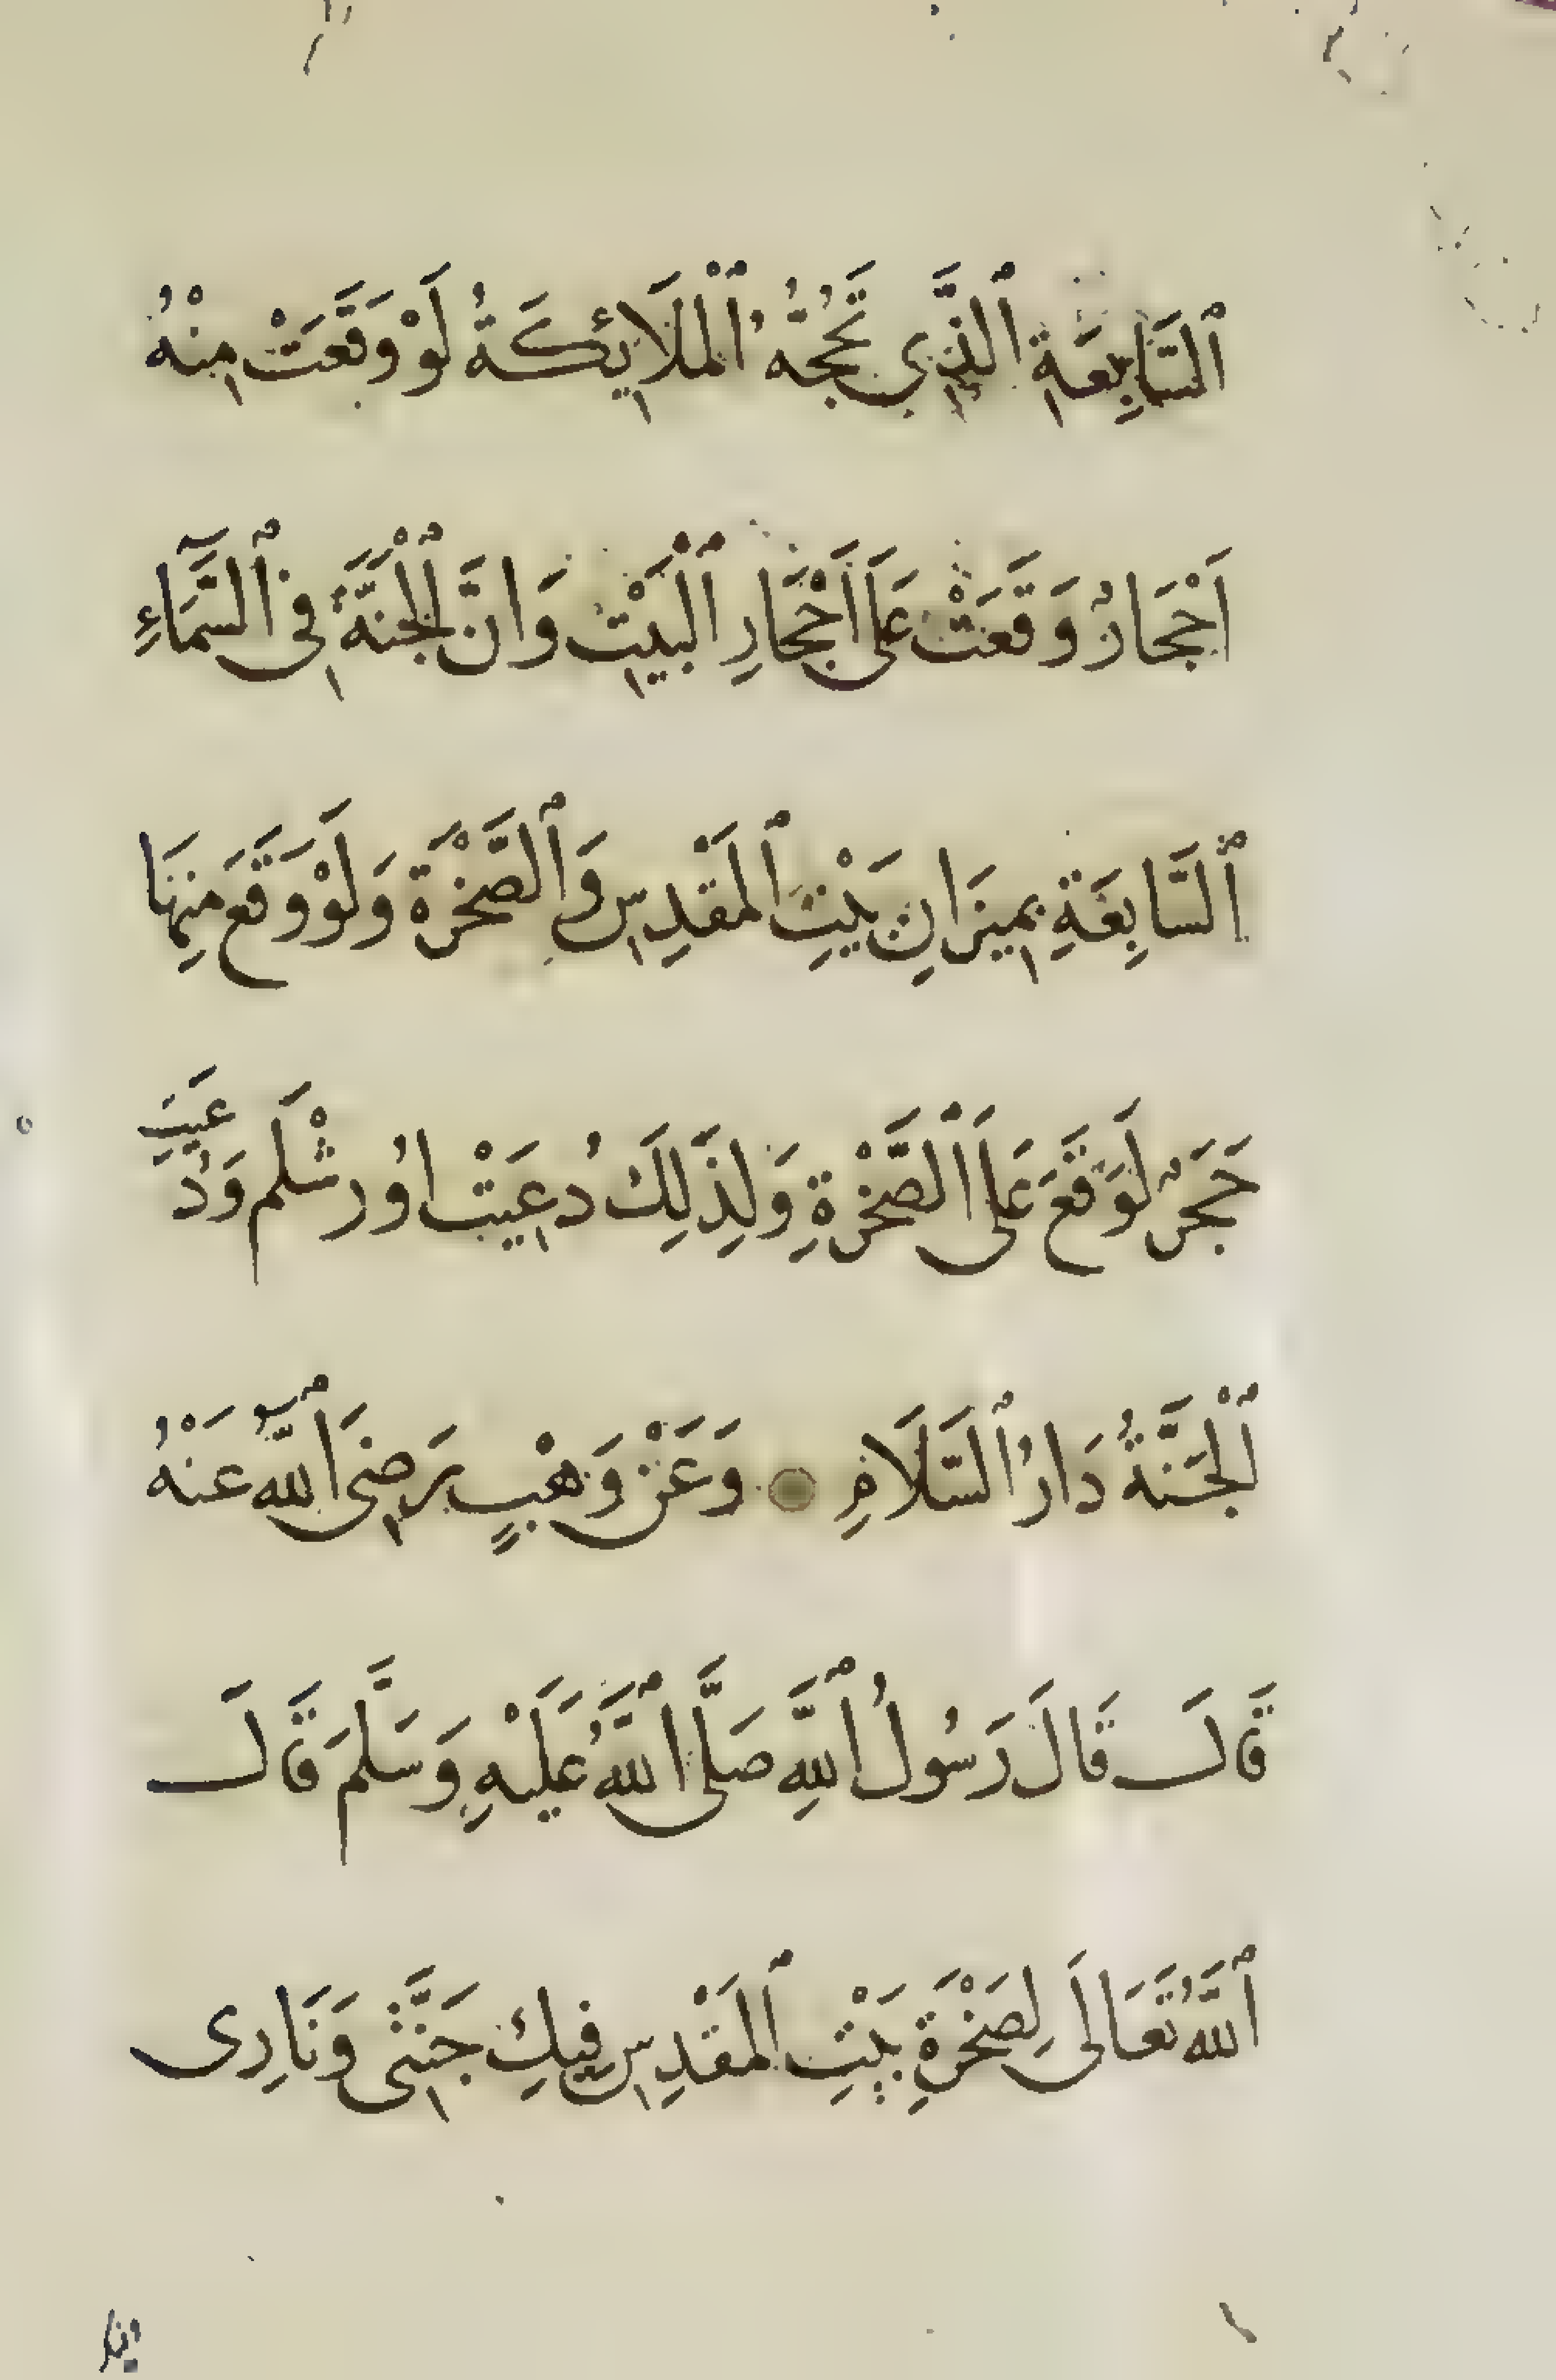 ٱلسَّابِعَةِ ٱلَّذِي تَحُجُّهُ ٱلْمَلَايِٕكَةُ لَوْ وَقَعَتْ مِنْهُ
اَحْجَارٌ وَقَعَتْ عَلَى اَحْجَارِ ٱلْبَيْتِ وَانَّ ٱلْجَنَّةَ فِي ٱلسَّمَآءِ
ٱلسَّابِعَةِ بِمِيزَانِ بَيْتِ ٱلمَقْدِسِ وَٱلصَّخْرَةِ وَلَوْ وَقَعَ مِنهَا
حَجَرٌ لَوَقَعَ عَلَى ٱلصَّخْرَةِ وَلِذَلِكَ دُعِيَتْ اوُرشْلَم وَدُعِيَتِ
ٱلْجَنَّةُ دَارُ ٱلسَّلَامِ وَعَنْ وَهْبٍ رَضِىَ ٱللَّهُ عَنْهُ
قَالَ قَالَ رَسُولُ ٱللَّهِ صَلَّى ٱللَّهُ عَلَيْهِ وَسَلَّمَ قَالَ
ٱللَّهُ تَعَالَى لِصَخْرَةِ بَيْتِ ٱلمَقْدِسِ فِيكِ جَنَّتِى وَنَارِى